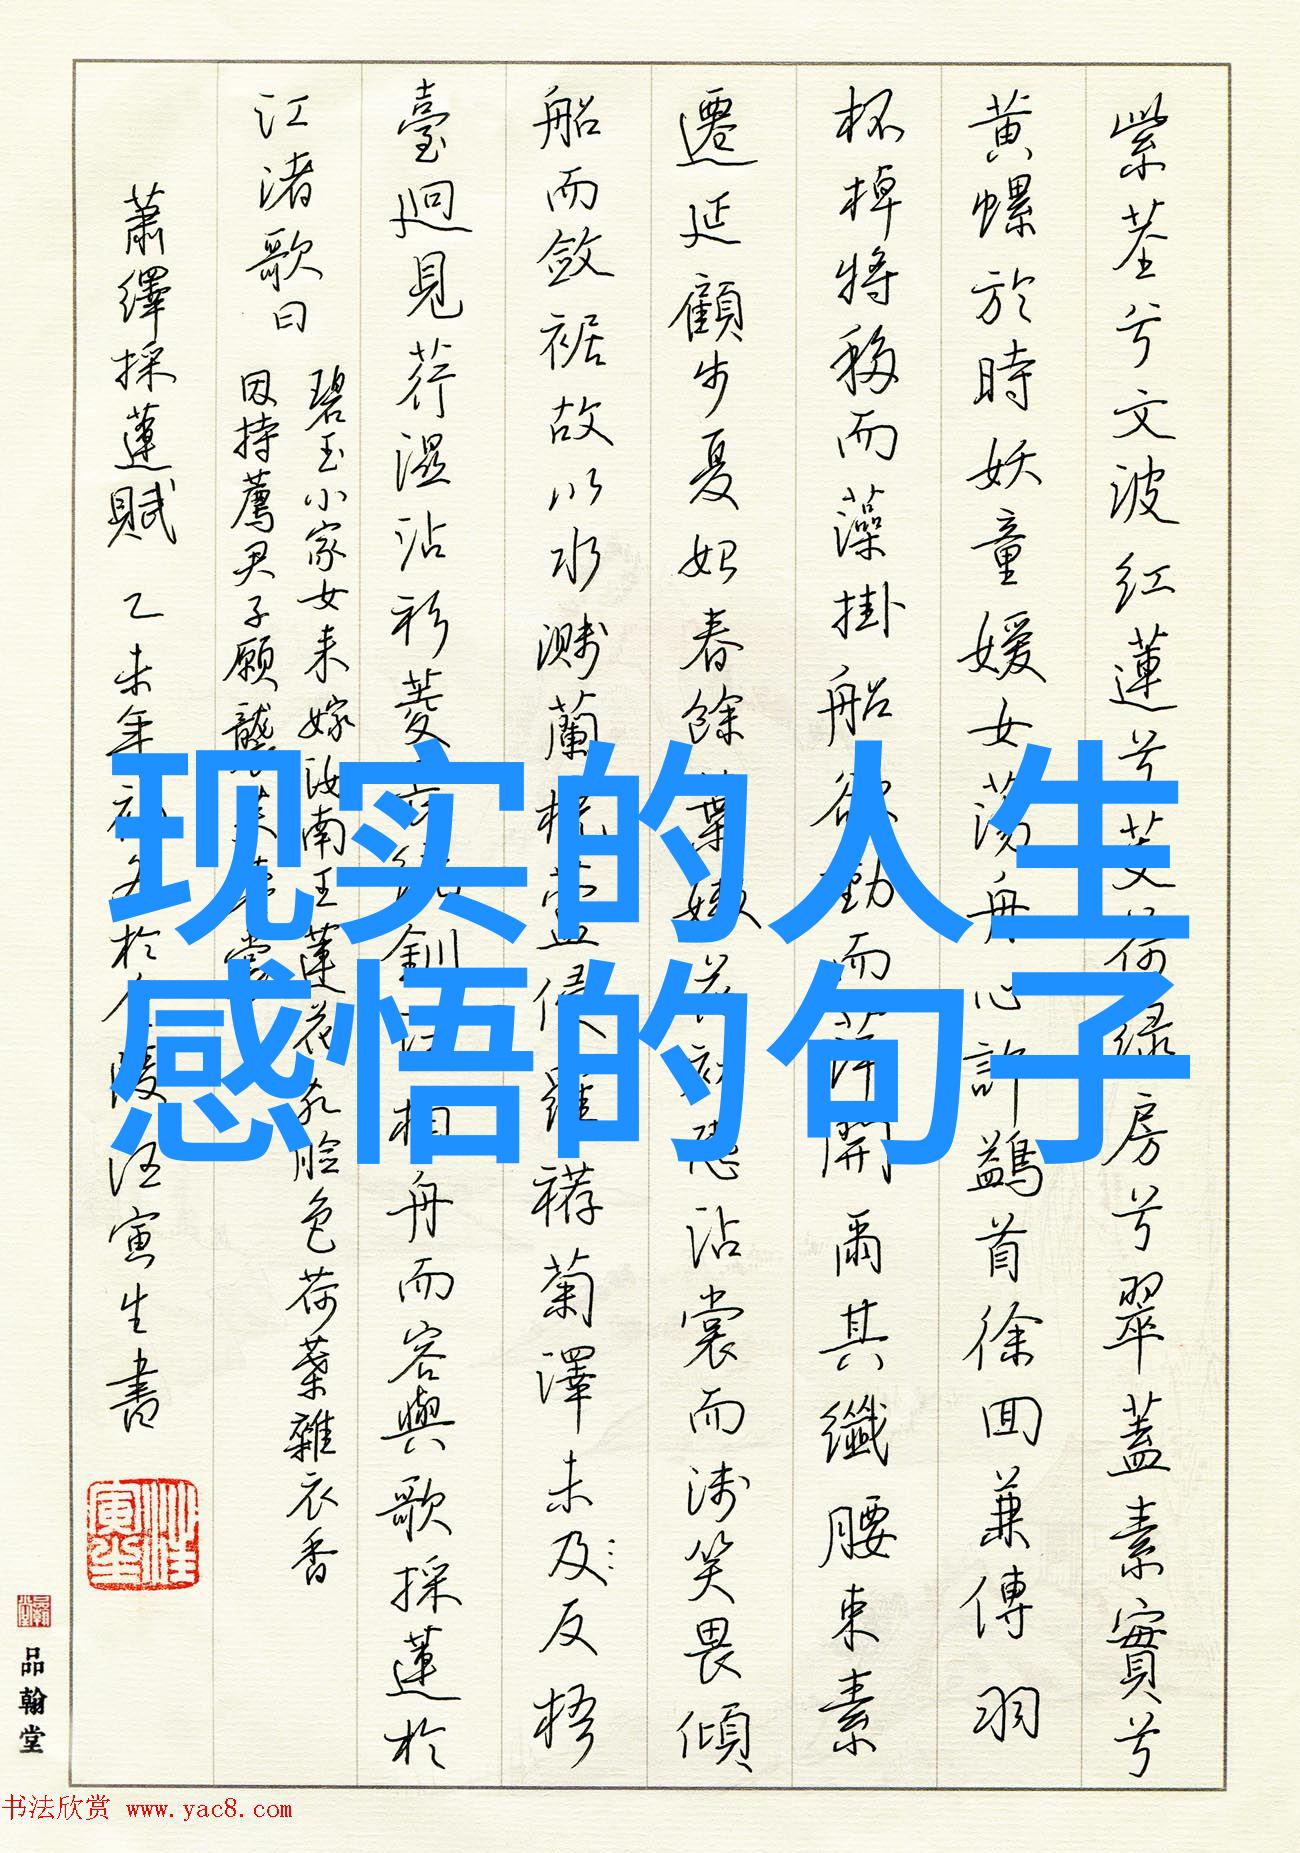 紫茎兮文波红蓮兮芰荷绿房兮翠蓋素實兮
黄螺於時妖童媛女荡舟心許鷁首徐回兼傳羽
杯棹将移而藻掛船欲動而萍開爾其纖腰束素
遷延顧步夏始春餘葉嫩花初恐沾裳而浅笑畏傾
船而斂裾故以水溅蘭桡蘆侵羅襦菊澤未及反梧
臺迥見荇濕沾衫菱亦绕釧泛柏舟而容與歌採蓮於
江渚歌曰
碧玉小家女来嫁汝南王蓮花乱臉色荷葉雜衣香
因持薦君子願襲芙蓉裳
蕭繹採蓮賦 乙未年初冬於金陵汪寅生書
现实的人生
感悟的句子
品翰堂
书法欣赏 www.yac8.com